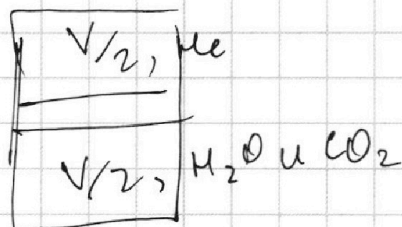 V/2, He
V/2, H₂O и CO₂